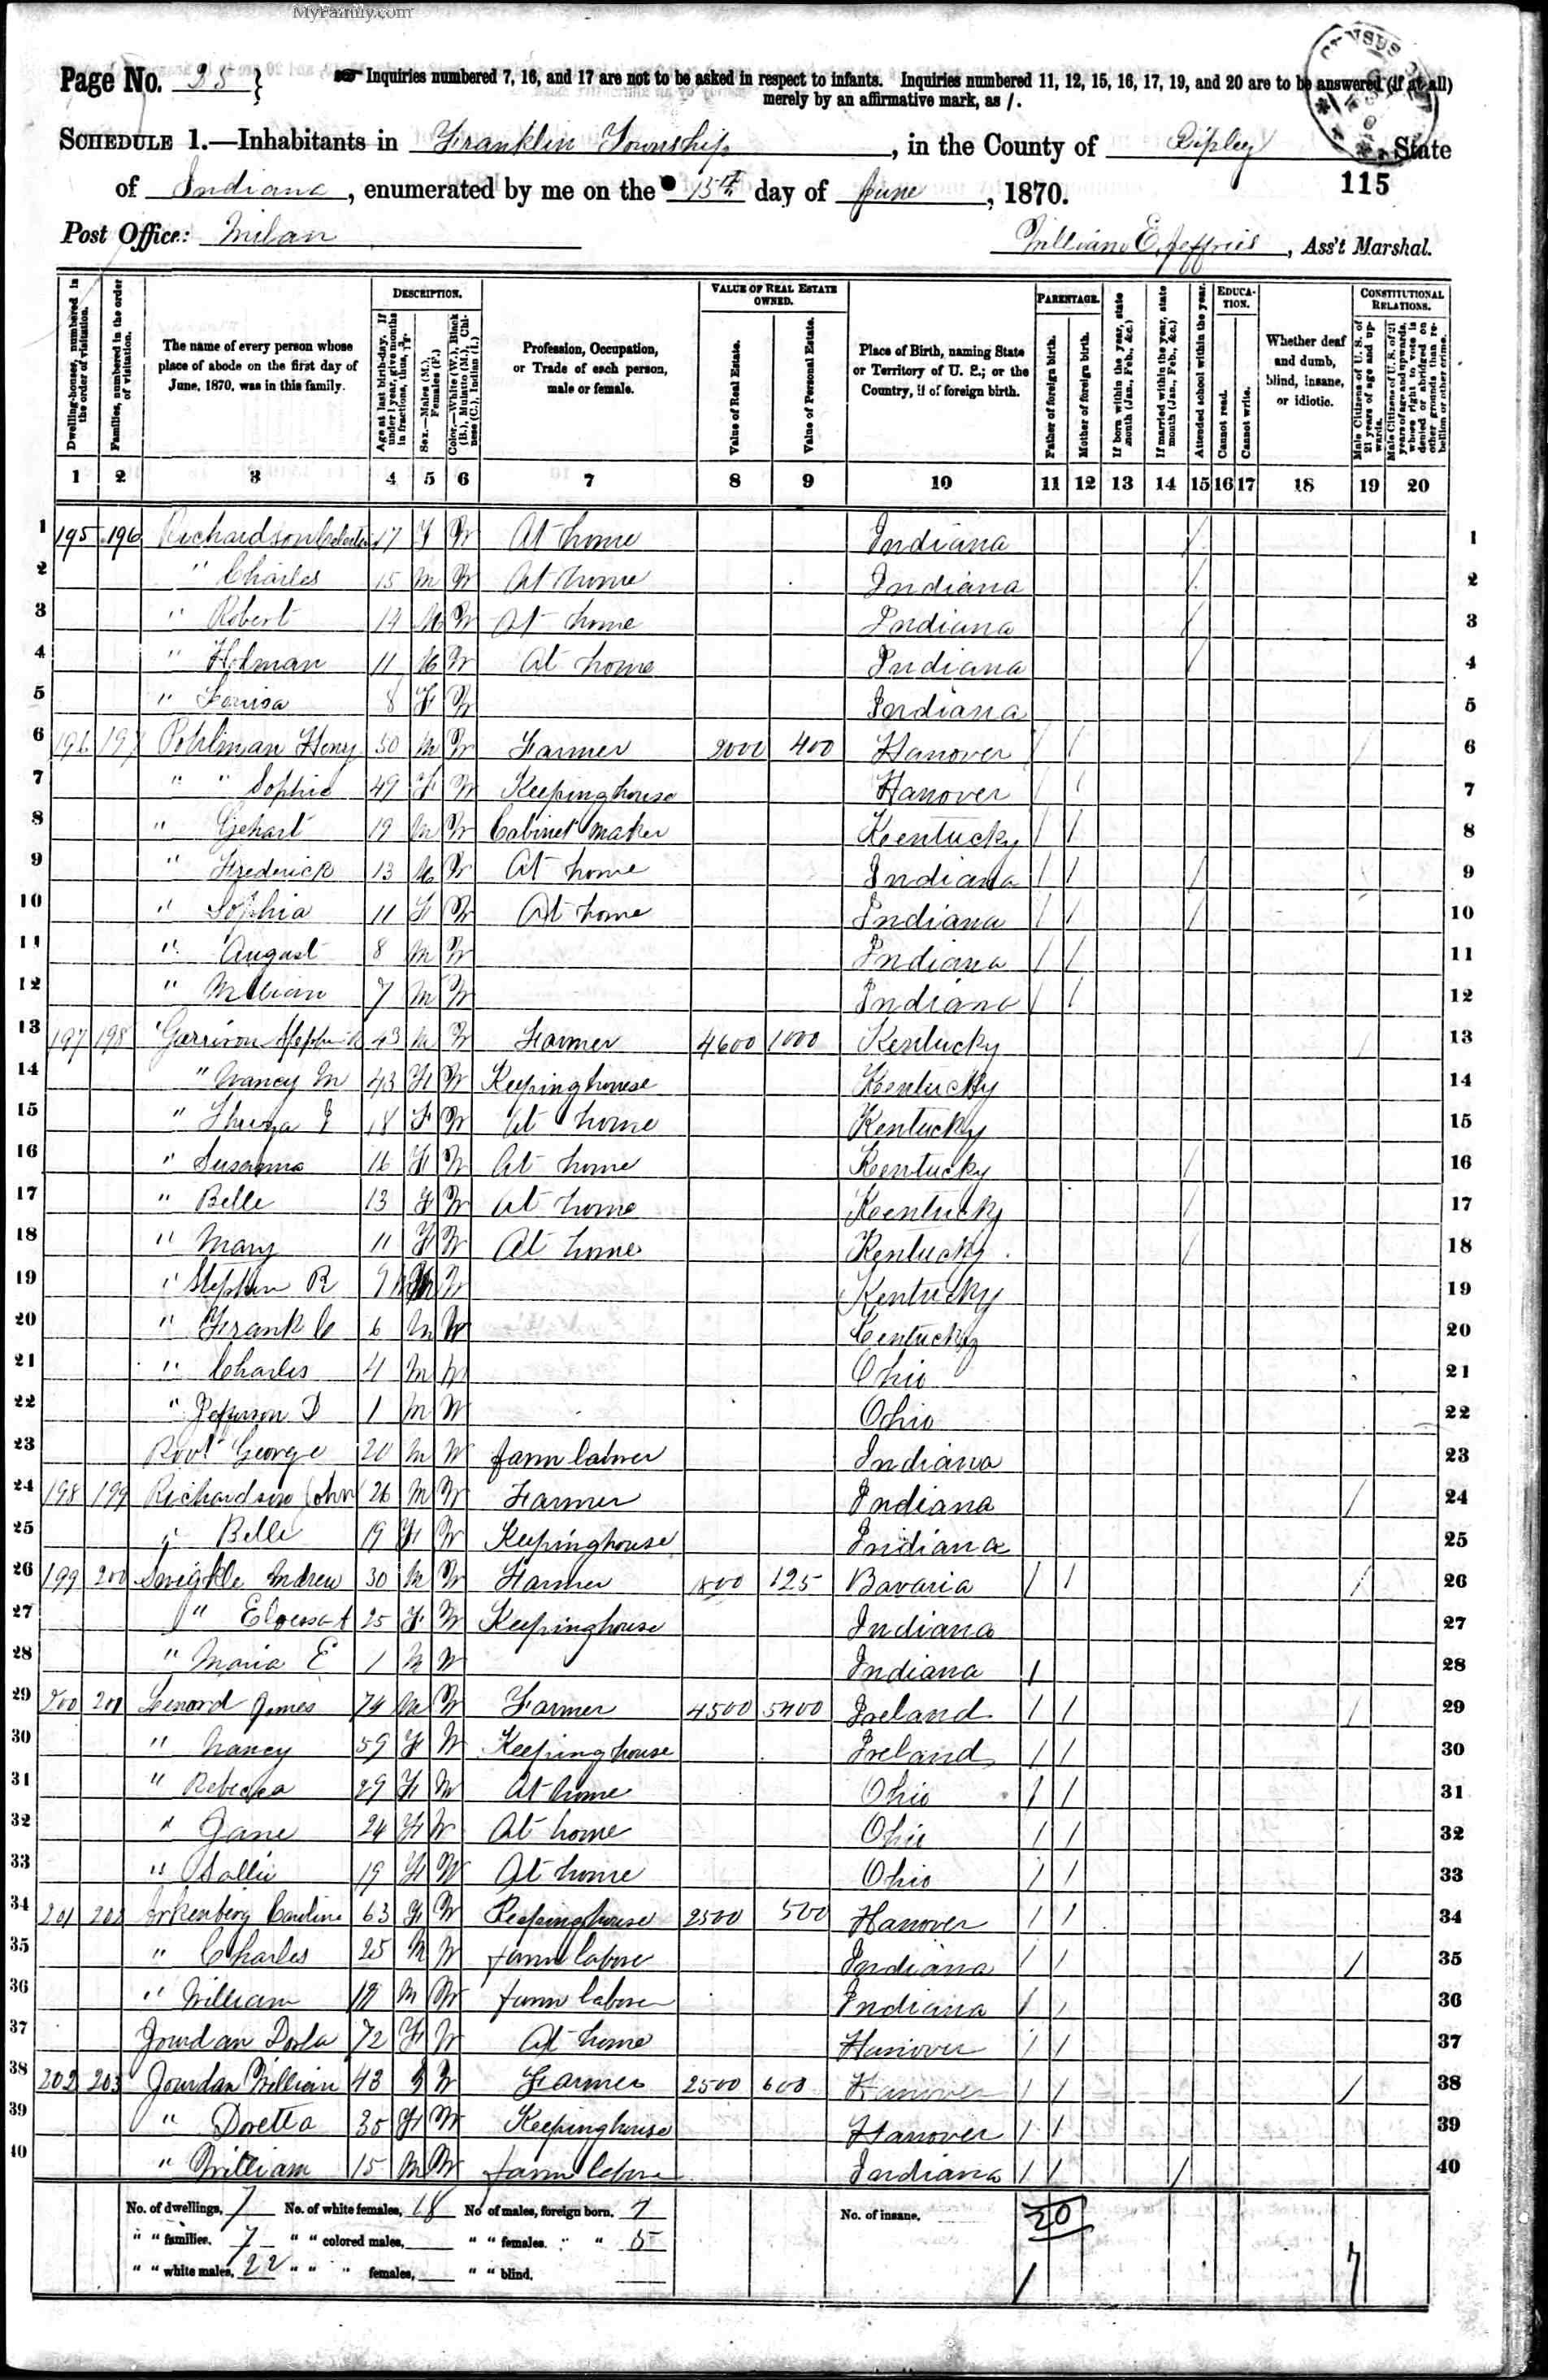 MyFamily.com
Page No. 25 } Inquiries numbered 7, 16, and 17 are not to be asked in respect to infants. Inquiries numbered 11, 12, 15, 16, 17, 19, and 20 are to be answered (if at all)
merely by an affirmative mark, as /.
SCHEDULE 1.—Inhabitants in Franklin Township, in the County of Ripley State
of Indiana, enumerated by me on the 15th day of June, 1870. 115
Post Office: Milan William E. Jeffries, Ass't Marshal.
DESCRIPTION. VALUE OF REAL ESTATE OWNED. PARENTAGE. EDUCATION. CONSTITUTIONAL RELATIONS.
Dwelling-houses, numbered in the order of visitation.
Families, numbered in the order of visitation.
The name of every person whose place of abode on the first day of June, 1870, was in this family.
Age at last birth-day. If under 1 year, give months in fractions, thus,
Sex.—Males (M.), Females (F.)
Color.—White (W.), Black (B.), Mulatto (M.), Chinese (C.), Indian (I.)
Profession, Occupation, or Trade of each person, male or female.
Value of Real Estate.
Value of Personal Estate.
Place of Birth, naming State or Territory of U. S.; or the Country, if of foreign birth.
Father of foreign birth.
Mother of foreign birth.
If born within the year, state month (Jan., Feb., &c.)
If married within the year, state month (Jan., Feb., &c.)
Attended school within the year.
Cannot read.
Cannot write.
Whether deaf and dumb, blind, insane, or idiotic.
Male Citizens of U. S. of 21 years of age and upwards.
Male Citizens of U. S. of 21 years of age and upwards, whose right to vote is denied or abridged on other grounds than rebellion or other crime.
1 2 3 4 5 6 7 8 9 10 11 12 13 14 15 16 17 18 19 20
1 195 196 Richardson 17 F W At home Indiana / 1
2 " Charles 15 M W At home Indiana / 2
3 " Robert 14 M W At home Indiana / 3
4 " Holman 11 M W At home Indiana / 4
5 " Louisa 8 F W Indiana 5
6 196 197 Pohlman Henry 50 M W Farmer 2000 400 Hanover / / / 6
7 " " Sophie 49 F W Keeping house Hanover / / 7
8 " Gehart 19 M W Cabinet maker Kentucky / / 8
9 " Frederick 13 M W At home Indiana / / / 9
10 " Sophia 11 F W At home Indiana / / / 10
11 " August 8 M W Indiana / / 11
12 " William 7 M W Indiana / / 12
13 197 198 Garrison 43 M W Farmer 4600 1000 Kentucky / 13
14 " Nancy M 43 F W Keeping house Kentucky 14
15 " 18 F W At home Kentucky 15
16 " Susanna 16 F W At home Kentucky / 16
17 " Belle 13 F W At home Kentucky / 17
18 " Mary 11 F W At home Kentucky / 18
19 " Stephen R 9 M W Kentucky 19
20 " Frank C 6 M W Kentucky 20
21 " Charles 4 M W Ohio 21
22 " Jefferson D 1 M W Ohio 22
23 George 20 M W farm laborer Indiana 23
24 198 199 Richardson John 26 M W Farmer Indiana / 24
25 " Belle 19 F W Keeping house Indiana 25
26 199 200 Andrew 30 M W Farmer 1800 125 Bavaria / / / 26
27 " 25 F W Keeping house Indiana 27
28 " Maria E 1 M W Indiana / 28
29 200 201 Lenord James 74 M W Farmer 4500 5400 Ireland / / / 29
30 " Nancy 59 F W Keeping house Ireland / / 30
31 " Rebecca 29 F W At home Ohio / / 31
32 " Jane 24 F W At home Ohio / / 32
33 " Sallie 19 F W At home Ohio / / 33
34 201 202 Arkenberg Caroline 63 F W Keeping house 2500 500 Hanover / / 34
35 " Charles 25 M W farm labore Indiana / / / 35
36 " William 19 M W farm labore Indiana / / 36
37 Jourdan 72 F W At home Hanover / / 37
38 202 203 Jourdan William 43 W Farmer 2500 600 Hanover / / / 38
39 " Doretta 35 F W Keeping house Hanover / / 39
40 " William 15 M W farm labore Indiana / / / 40
No. of dwellings, 7 No. of white females, 18 No of males, foreign born. 7 No. of insane. 20
" " families. 7 " " colored males, " " females. " " 5
" " white males, 22 " " " females, " " blind. 1 7